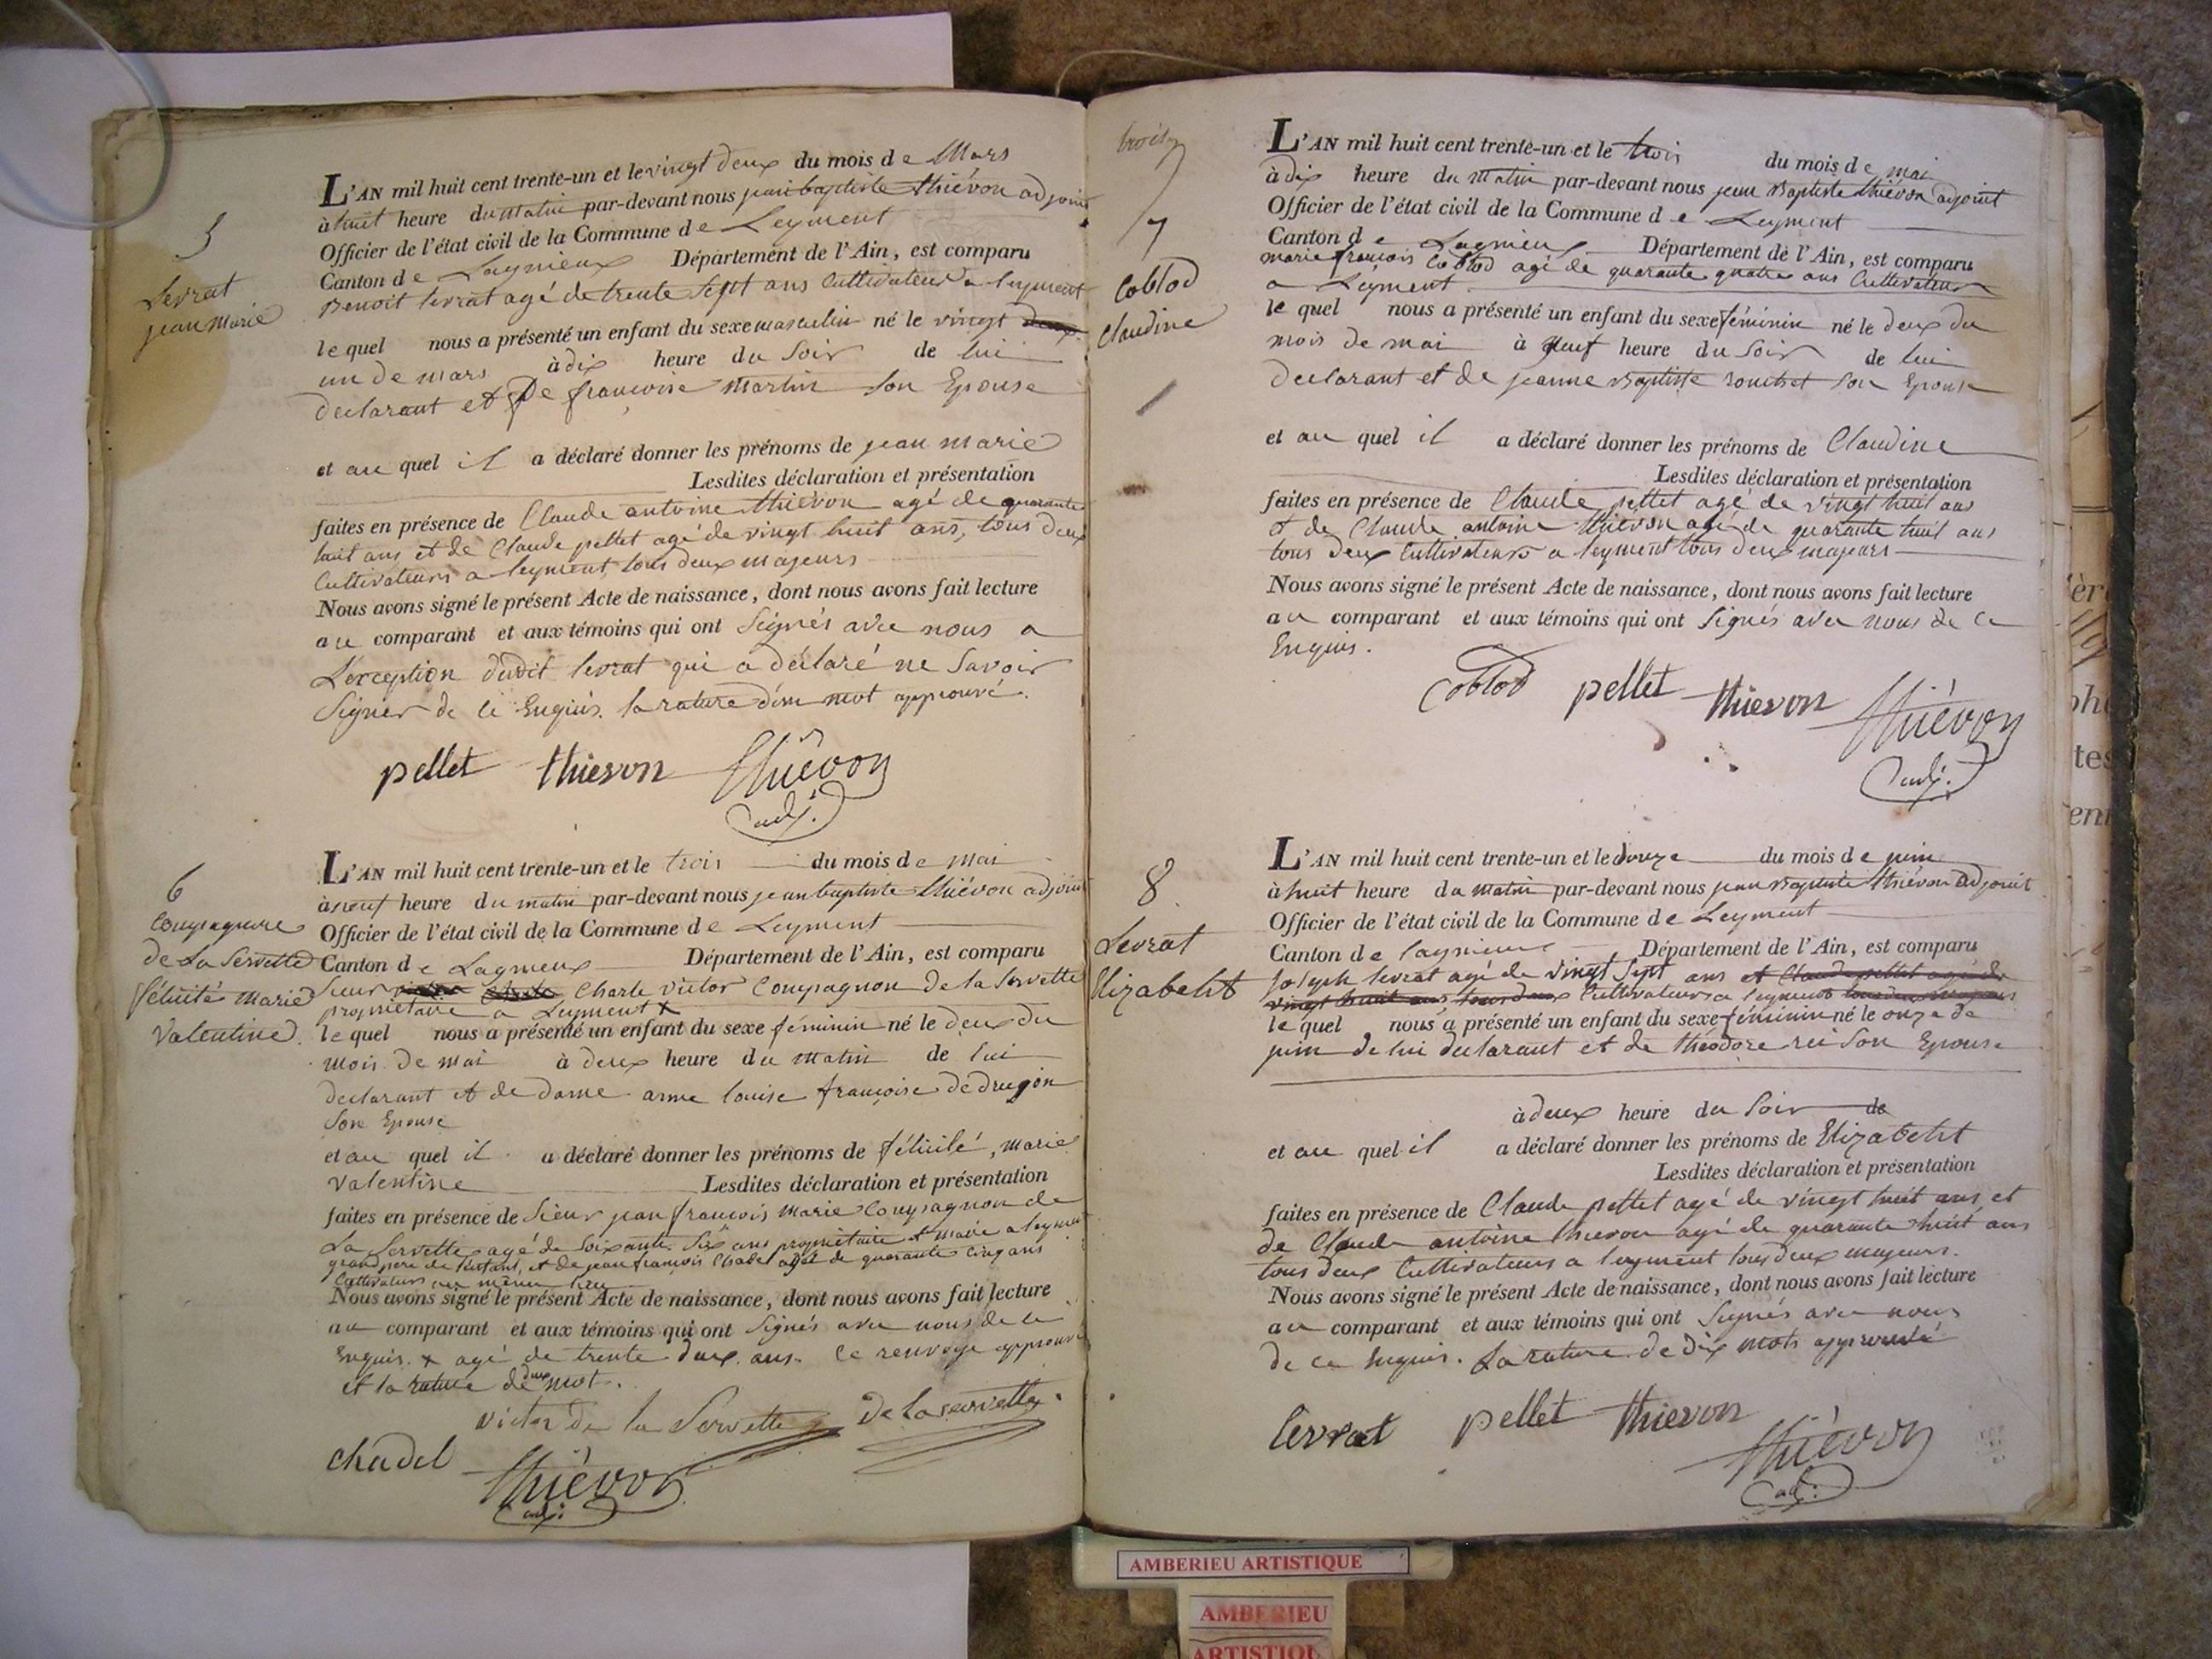 5
Levrat
jean Marie
L'AN mil huit cent trente-un et le vingt deux du mois de Mars
à huit heure du matin par-devant nous jean baptiste thiévon adjoint
Officier de l'état civil de la Commune de Leyment
Canton de Lagnieux Département de l'Ain, est comparu
Benoit levrat agé de trente sept ans Cultivateur a leyment
le quel nous a présenté un enfant du sexe masculin né le vingt deux
un de mars à dix heure du Soir de lui
declarant et de francoise Martin Son Epouse
et au quel il a déclaré donner les prénoms de jean marie
Lesdites déclaration et présentation
faites en présence de Claude antoine thiévon agé de quarante
huit ans et de Claude pellet agé de vingt huit ans, tous deux
Cultivateurs a leyment, tous deux majeurs
Nous avons signé le présent Acte de naissance, dont nous avons fait lecture
au comparant et aux témoins qui ont Signés avec nous a
L'exception dudit levrat qui a déclaré ne Savoir
Signer de ce Enquis. la rature d'un mot approuvé.
pellet thievon Thiévon
adj.
6
Compagnon
de La Servette
félicité Marie
Valentine.
L'AN mil huit cent trente-un et le trois du mois de mai
à neuf heure du matin par-devant nous jean baptiste thiévon adjoint
Officier de l'état civil de la Commune de Leyment
Canton de Lagnieux Département de l'Ain, est comparu
Sieur Charle victor Compagnon de la Servette
propriétaire a Leyment x
le quel nous a présenté un enfant du sexe féminin né le deux du
mois de mai à deux heure du matin de lui
declarant et de dame anne louise françoise dedrugon
Son Epouse
et au quel il a déclaré donner les prénoms de félicité, marie
Valentine Lesdites déclaration et présentation
faites en présence de Sieur jean francois Marie Compagnon de
La Servette agé de Soixante Six ans propriétaire et Maire a leyment
grand pere de l'enfant, et de jean francois Chadel agé de quarante cinq ans
Cultivateur au même lieu
Nous avons signé le présent Acte de naissance, dont nous avons fait lecture
au comparant et aux témoins qui ont Signés avec nous de ce
Enquis. x agé de trente deux ans. le renvoye approuvé
et la rature de deux mot.
victor De la Servette De Laservette
chadel Thiévon
adj:
trois
7
Coblod
Claudine
L'AN mil huit cent trente-un et le trois du mois de mai
à dix heure du Matin par-devant nous jean Baptiste thiévon adjoint
Officier de l'état civil de la Commune de Leyment
Canton de Lagnieux Département de l'Ain, est comparu
marie francois Coblod agé de quarante quatre ans Cultivateur
a Leyment
le quel nous a présenté un enfant du sexe féminin né le deux du
mois de mai à neuf heure du Soir de lui
declarant et de jeanne Baptiste Son Epouse
et au quel il a déclaré donner les prénoms de Claudine
Lesdites déclaration et présentation
faites en présence de Claude pellet agé de vingt huit ans
et de Claude antoine thievon agé de quarante huit ans
tous deux Cultivateurs a leyment tous deux majeurs
Nous avons signé le présent Acte de naissance, dont nous avons fait lecture
au comparant et aux témoins qui ont Signés avec nous de ce
Enquis.
Coblod pellet thievon Thiévon
adj.
8
Levrat
Elizabeht
L'AN mil huit cent trente-un et le douze du mois de juin
à huit heure du matin par-devant nous jean Baptiste thiévon adjoint
Officier de l'état civil de la Commune de Leyment
Canton de lagnieux Département de l'Ain, est comparu
joseph levrat agé de vingt Sept ans et Claude pellet agé de
vingt huit ans, tous deux Cultivateurs a leyment tous deux majeurs
le quel nous a présenté un enfant du sexe féminin né le onze de
juin de lui declarant et de théodore rei Son Epouse
à deux heure du Soir de
et au quel il a déclaré donner les prénoms de Elizabeht
Lesdites déclaration et présentation
faites en présence de Claude pellet agé de vingt huit ans, et
de Claude antoine thievon agé de quarante huit ans
tous deux Cultivateurs a leyment tous deux majeurs.
Nous avons signé le présent Acte de naissance, dont nous avons fait lecture
au comparant et aux témoins qui ont Signés avec nous
de ce Enquis. La rature de dix mots approuvé
levrat pellet thievon Thiévon
adj:
AMBERIEU ARTISTIQUE
AMBERIEU
ARTISTIQU